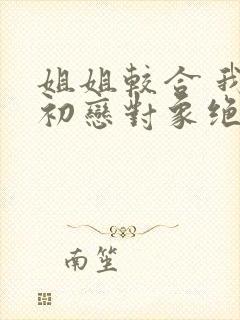 姐姐較合我
初戀對象絕
南笙